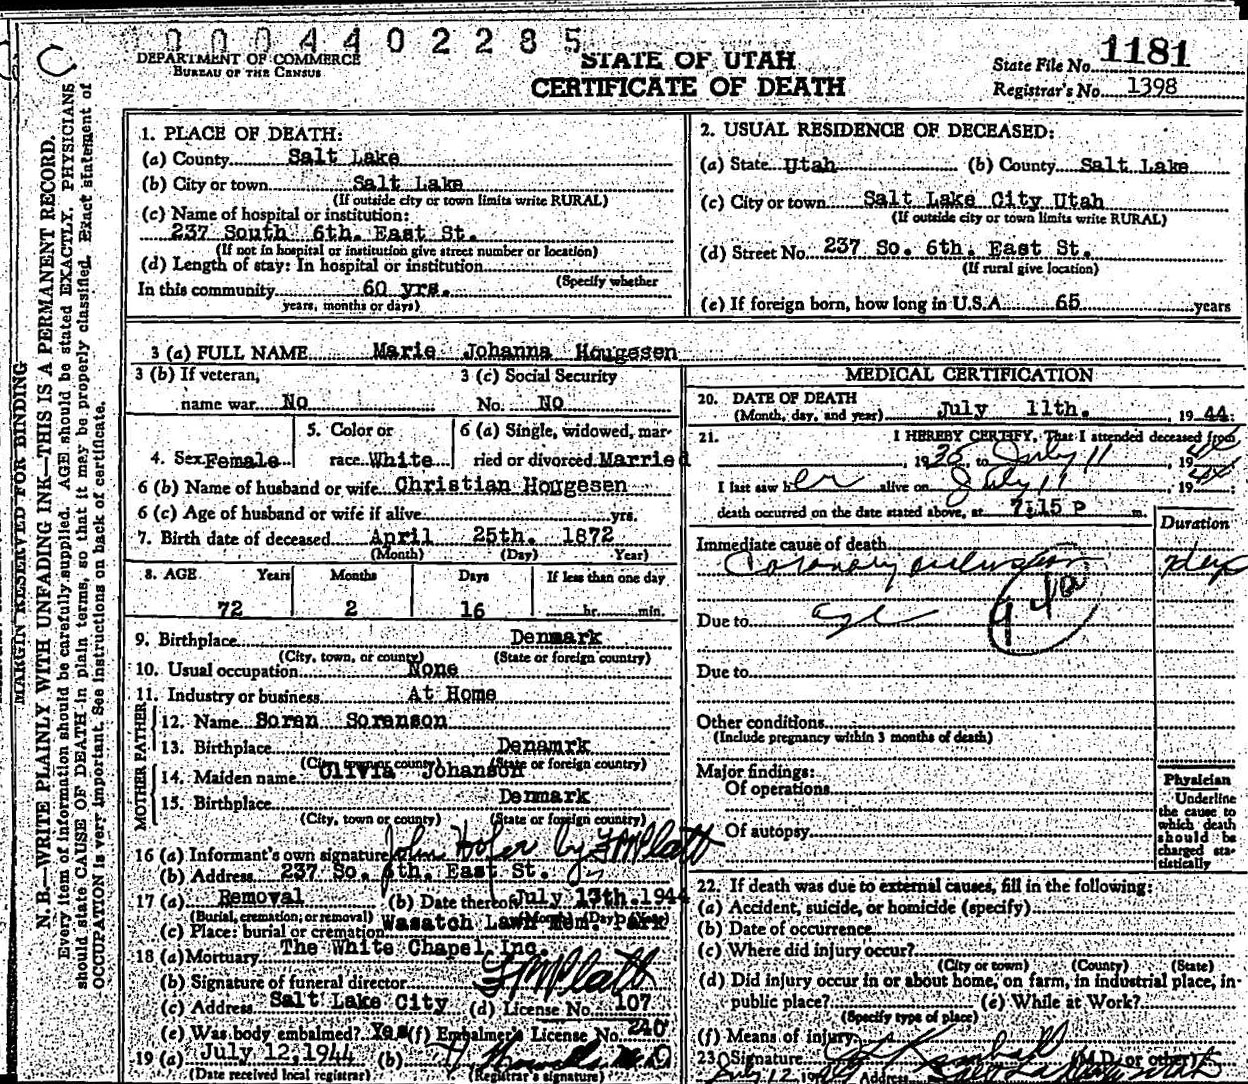 0004402285
DEPARTMENT OF COMMERCE
BUREAU OF THE CENSUS
STATE OF UTAH
CERTIFICATE OF DEATH
State File No. 1181
Registrar's No. 1398
MARGIN RESERVED FOR BINDING
N. B.—WRITE PLAINLY WITH UNFADING INK—THIS IS A PERMANENT RECORD.
Every item of information should be carefully supplied. AGE should be stated EXACTLY. PHYSICIANS
should state CAUSE OF DEATH in plain terms, so that it may be properly classified. Exact statement of
OCCUPATION is very important. See instructions on back of certificate.
1. PLACE OF DEATH:
(a) County Salt Lake
(b) City or town Salt Lake
(If outside city or town limits write RURAL)
(c) Name of hospital or institution:
237 South 6th. East St.
(If not in hospital or institution give street number or location)
(d) Length of stay: In hospital or institution
(Specify whether
In this community 60 yrs.
years, months or days)
2. USUAL RESIDENCE OF DECEASED:
(a) State Utah (b) County Salt Lake
(c) City or town Salt Lake City Utah
(If outside city or town limits write RURAL)
(d) Street No. 237 So. 6th. East St.
(If rural give location)
(e) If foreign born, how long in U.S.A. 65 years
3 (a) FULL NAME Marie Johanna Hougesen
3 (b) If veteran,
name war No
3 (c) Social Security
No. No
4. Sex Female
5. Color or
race White
6 (a) Single, widowed, mar-
ried or divorced Married
6 (b) Name of husband or wife Christian Hougesen
6 (c) Age of husband or wife if alive yrs.
7. Birth date of deceased April 25th. 1872
(Month) (Day) Year)
8. AGE Years Months Days If less than one day
72 2 16 hr. min.
9. Birthplace Denmark
(City, town, or county) (State or foreign country)
10. Usual occupation None
11. Industry or business At Home
FATHER
12. Name Soran Soranson
13. Birthplace Denamrk
(City, town or county) (State or foreign country)
MOTHER
14. Maiden name Olivia Johanson
15. Birthplace Denmark
(City, town or county) (State or foreign country)
16 (a) Informant's own signature John Hofer by F M Platt
(b) Address 237 So. 6th. East St.
17 (a) Removal (b) Date thereof July 13th. 1944
(Burial, cremation, or removal) (Month) (Day) (Year)
(c) Place: burial or cremation Wasatch Lawn Mem. Park
18 (a) Mortuary The White Chapel Inc.
(b) Signature of funeral director F M Platt
(c) Address Salt Lake City (d) License No. 107
(e) Was body embalmed? Yes (f) Embalmer's License No. 240
19 (a) July 12,1944 (b) M.D.
(Date received local registrar) (Registrar's signature)
MEDICAL CERTIFICATION
20. DATE OF DEATH
(Month, day, and year) July 11th. , 1944.
21. I HEREBY CERTIFY, That I attended deceased from
, 1938, to July 11, 1944
I last saw her alive on July 11, 1944;
death occurred on the date stated above, at 7:15 P m.
Duration
Immediate cause of death
Coronary occlusion days
Due to age
94a
Due to
Other conditions
(Include pregnancy within 3 months of death)
Major findings:
Of operations
Of autopsy
Physician
Underline
the cause to
which death
should be
charged sta-
tistically
22. If death was due to external causes, fill in the following:
(a) Accident, suicide, or homicide (specify)
(b) Date of occurrence
(c) Where did injury occur?
(City or town) (County) (State)
(d) Did injury occur in or about home, on farm, in industrial place, in
public place? (e) While at Work?
(Specify type of place)
(f) Means of injury
23. Signature (M.D. or other)
July 12, 19 Address